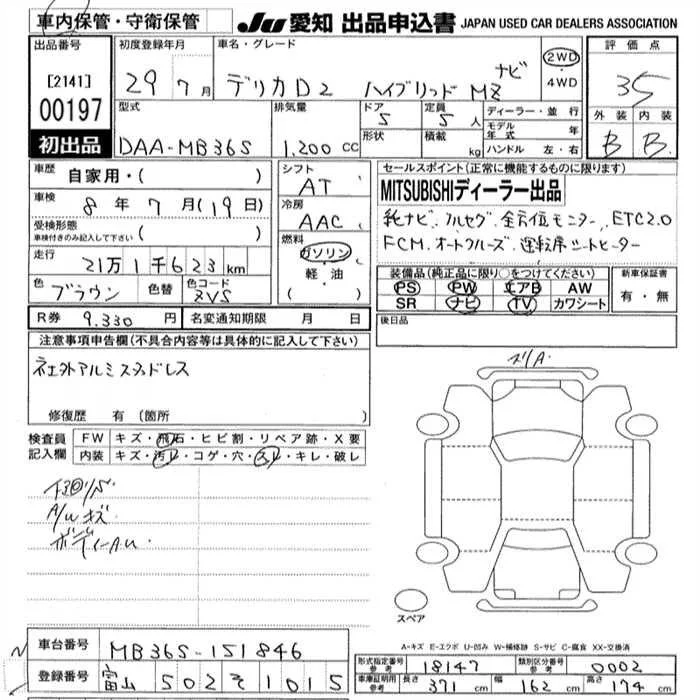 車内保管・守衛保管 JU 愛知 出品申込書 JAPAN USED CAR DEALERS ASSOCIATION
出品番号 [2141] 00197 初出品
初度登録年月 29 7月
車名・グレード デリカD2 ハイブリッド MZ ナビ
2WD ・ 4WD
評価点 3.5
外装 内装
B B
型式 DAA-MB36S
排気量 1,200 CC
ドア 5
形状
定員 5人
積載 kg
ディーラー・並行
モデル年式 年
ハンドル 左・右
車歴 自家用・( )
車検 8年 7月(19日)
受検形態 車検付きのみ記入して下さい ( )
走行 21万1千623km
色 ブラウン 色替 色コード ZVS
シフト AT
冷房 AAC
燃料 ガソリン 軽・油 ( )
セールスポイント(正常に機能するものに限ります)
MITSUBISHIディーラー出品
純ナビ、フルセグ、全方位モニター、ETC2.0
FCM、オートクルーズ、運転席シートヒーター
装備品(純正品に限り○をつけてください)
PS PW エアB AW
SR ナビ TV カワシート
新車保証書 有・無
後日品
R券 9,330円 名変通知期限 月 日
注意事項申告欄(不具合内容等は具体的に記入して下さい)
社外アルミスタッドレス
修復歴 有(箇所
検査員記入欄
FW キズ・飛石・ヒビ割・リペア跡・X要
内装 キズ・汚レ・コゲ・穴・スレ・キレ・破レ
A/Wキズ
ボディーA.U
ズリA
スペア
A-キズ E-エクボ U-凹み W-補修跡 S-サビ C-腐食 XX-交換済
車台番号 MB36S-151846
登録番号 富山 502 そ 1015
形式指定番号 参考 18147 類別区分番号 参考 0002
車庫証明用 参考 長さ 371cm 幅 162cm 高さ 174cm